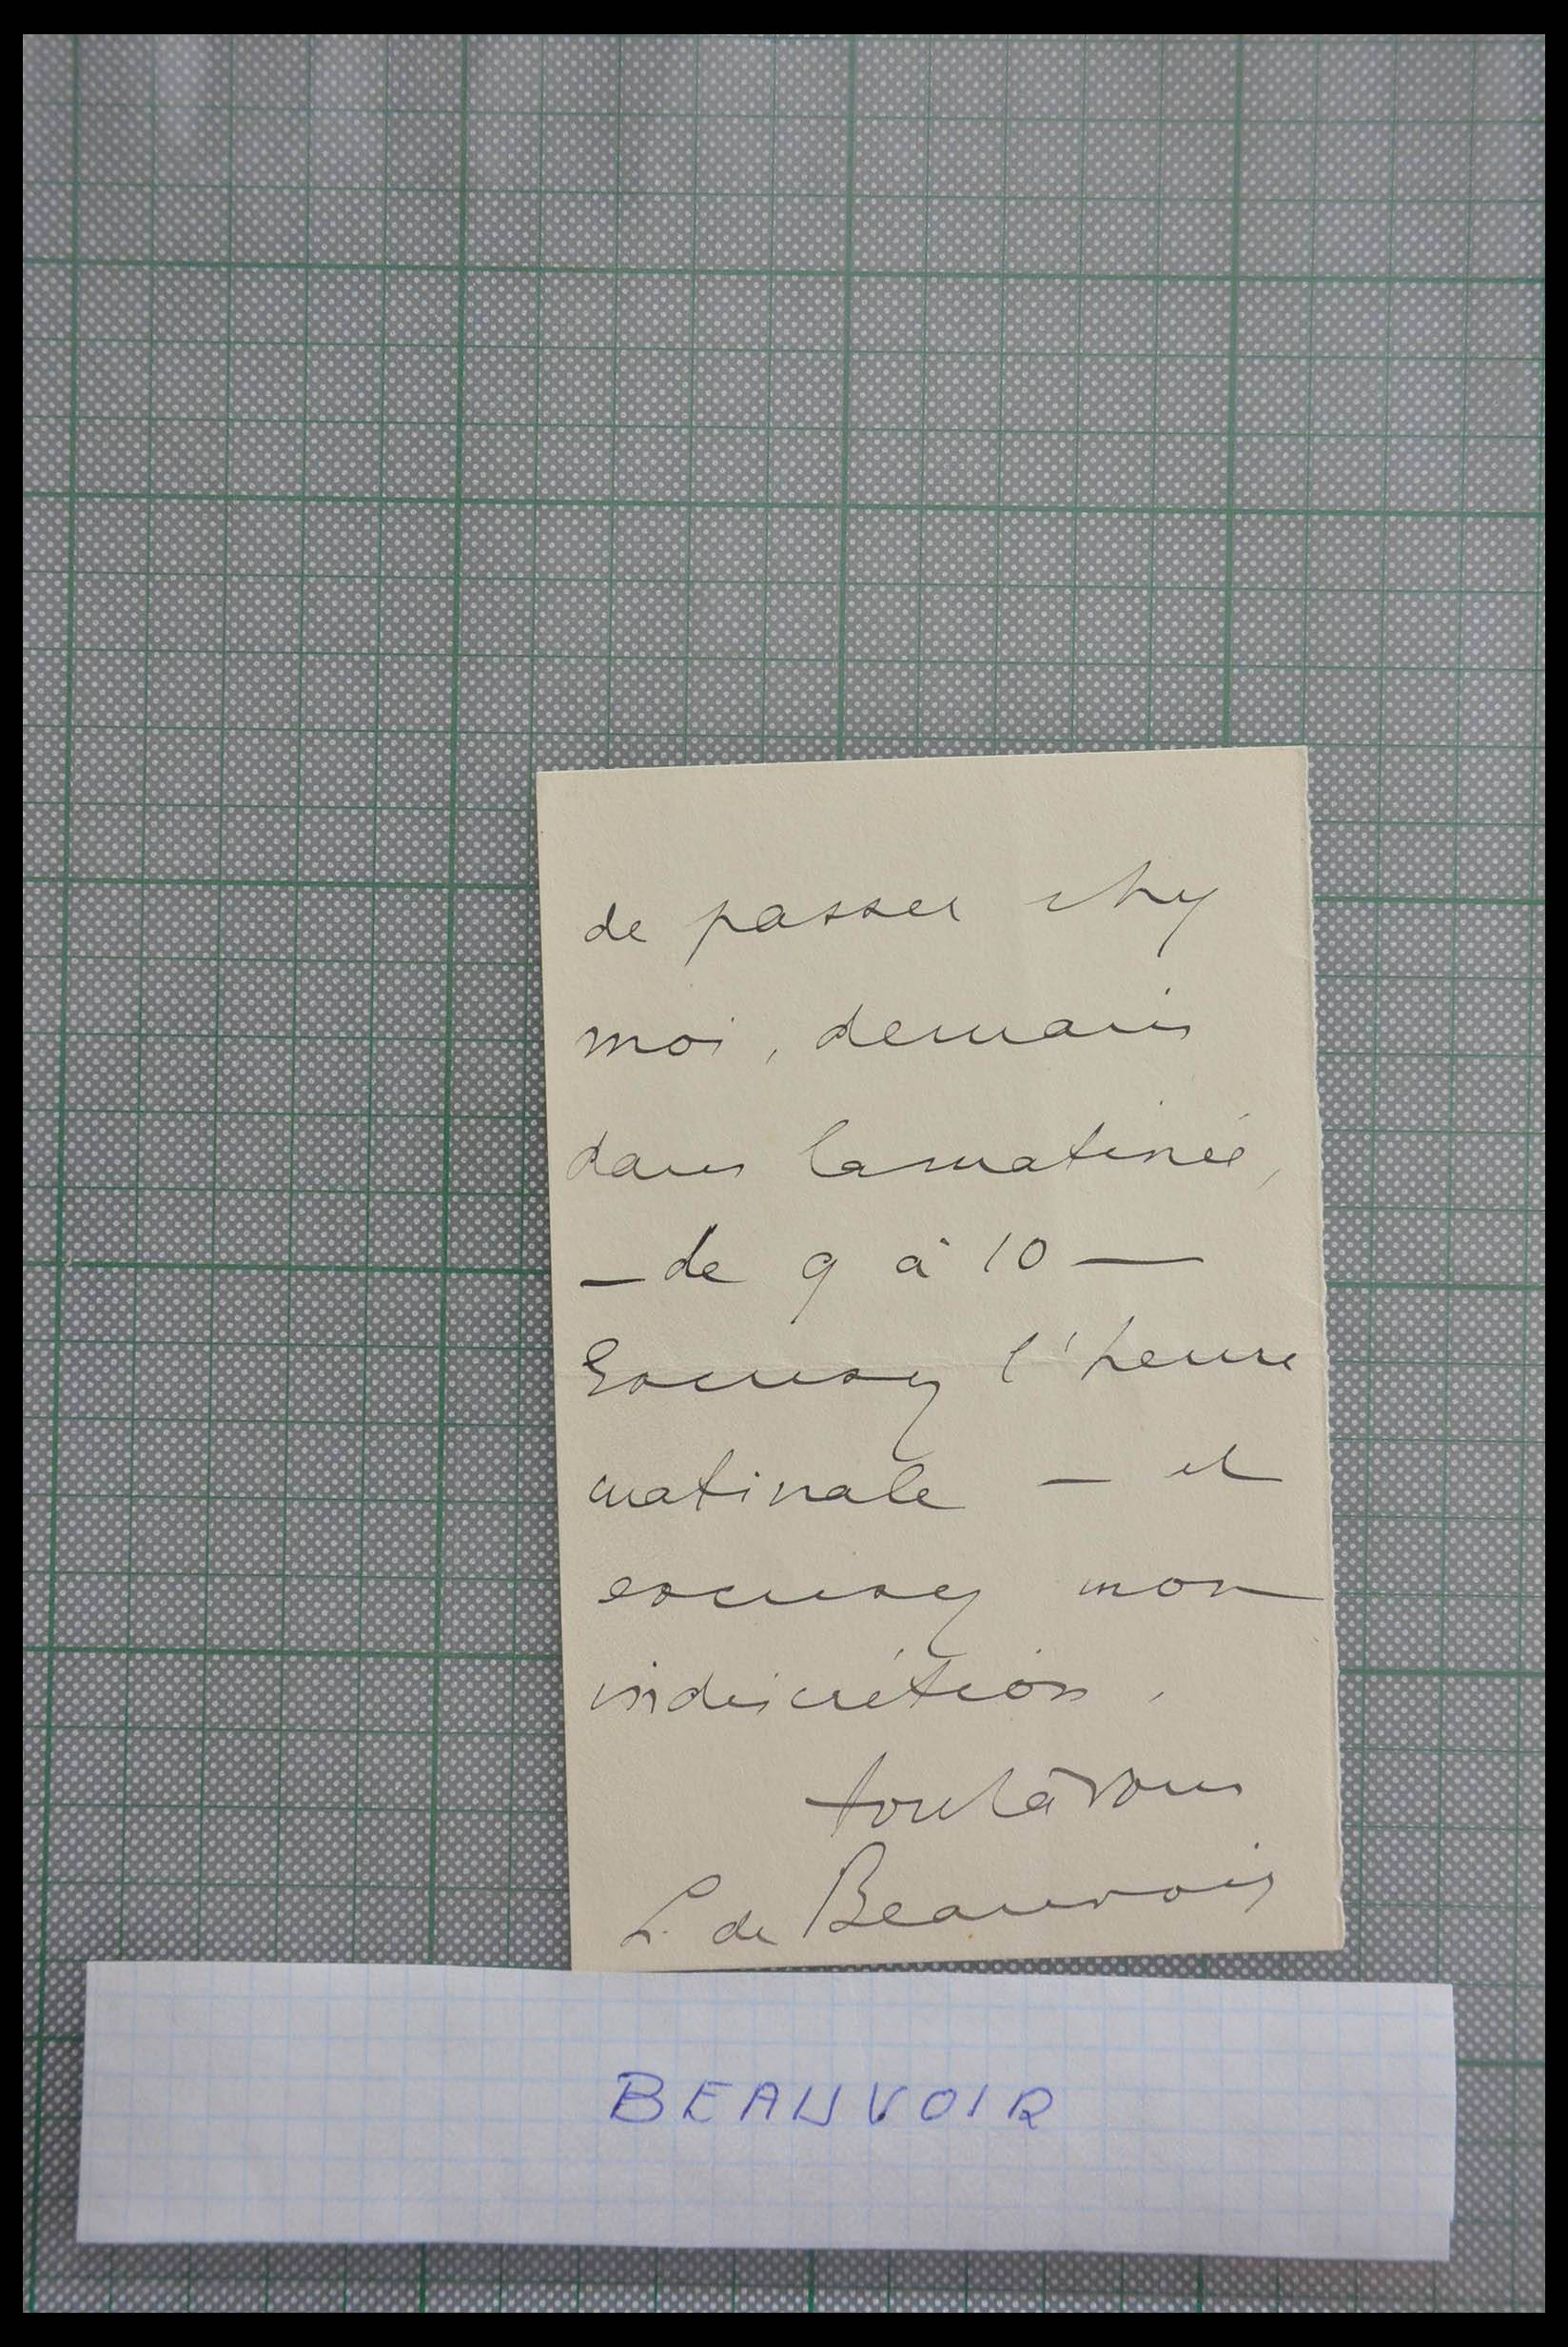 de passer chez
moi, demain
dans la matinée,
— de 9 à 10 —
Excusez l'heure
matinale — et
excusez mon
indiscrétion.
tout à vous
L. de Beauvoir
BEAUVOIR